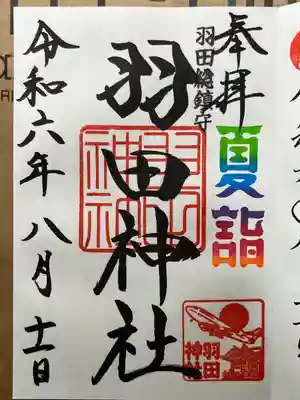 奉拝
羽田総鎮守
夏詣
羽田神社
羽田神社
羽田神社
令和六年八月十一日